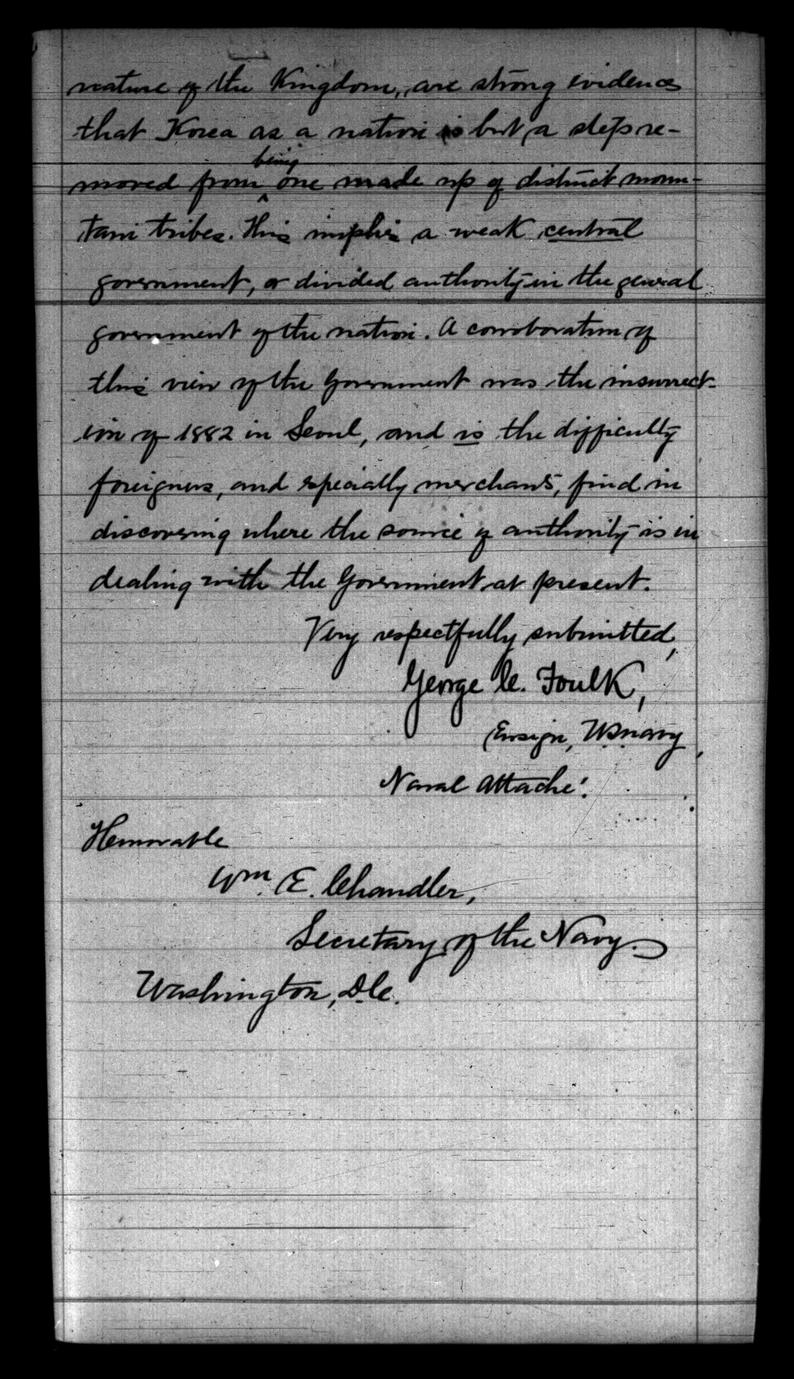 nature of the Kingdom, are strong evidences
that Korea as a nation is but a step re-
being
moved from ^ one made up of distinct moun-
tain tribes. This implies a weak central
government, or divided authority in the general
government of the nation. A corroboration of
this view of the Government was the insurrect-
ion of 1882 in Seoul, and is the difficulty
foreigners, and especially merchants, find in
discovering where the source of authority is in
dealing with the Government at present.
Very respectfully submitted,
George C. Foulk,
Ensign, US Navy,
Naval Attaché.
Honorable
Wm. E. Chandler,
Secretary of the Navy.
Washington, D.C.